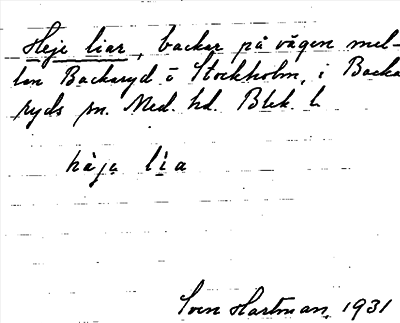 Heje liar, backar på vägen mel-
lan Backaryd o Stockholm, i Backa
ryds sn. Med. hd. Blek. l.
hàja lìa
Sven Hartman, 1931